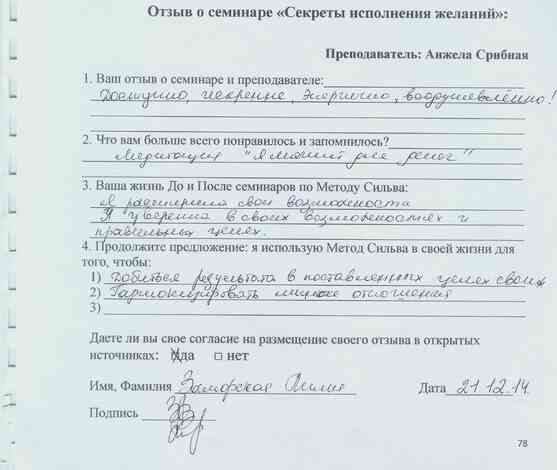 Отзыв о семинаре «Секреты исполнения желаний»:
Преподаватель: Анжела Срибная
1. Ваш отзыв о семинаре и преподавателе:
Доступно, искренне, энергично, воодушевлённо!
2. Что вам больше всего понравилось и запомнилось?
Медитация "Я магнит для денег"
3. Ваша жизнь До и После семинаров по Методу Сильва:
Я расширила свои возможности
Я уверенна в своих возможностях и
правильных целях.
4. Продолжите предложение: я использую Метод Сильва в своей жизни для
того, чтобы:
1) Добиться результата в поставленных целях своих
2) Гармонизировать личные отношения
3)
Даете ли вы свое согласие на размещение своего отзыва в открытых
источниках: да нет
Имя, Фамилия Заморская Лилия Дата 21.12.14.
Подпись
78